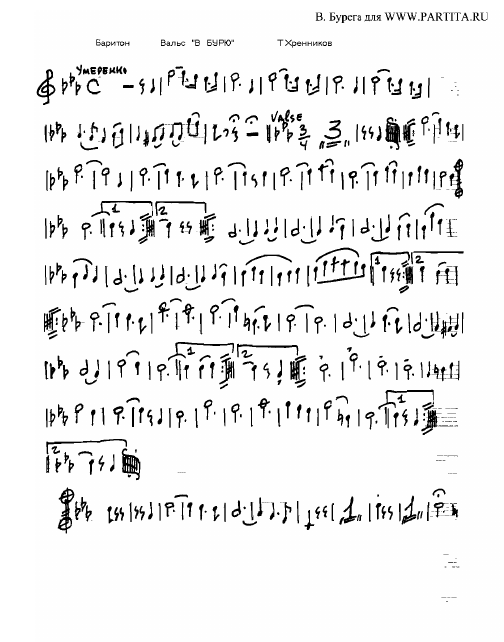 В. Бурсга для WWW.PARTITA.RU
Баритон Вальс "В БУРЮ" Т Хренников
УМЕРЕННО
VALSE
3
4
3
1 2
1 2
1 2
1
2
1 1